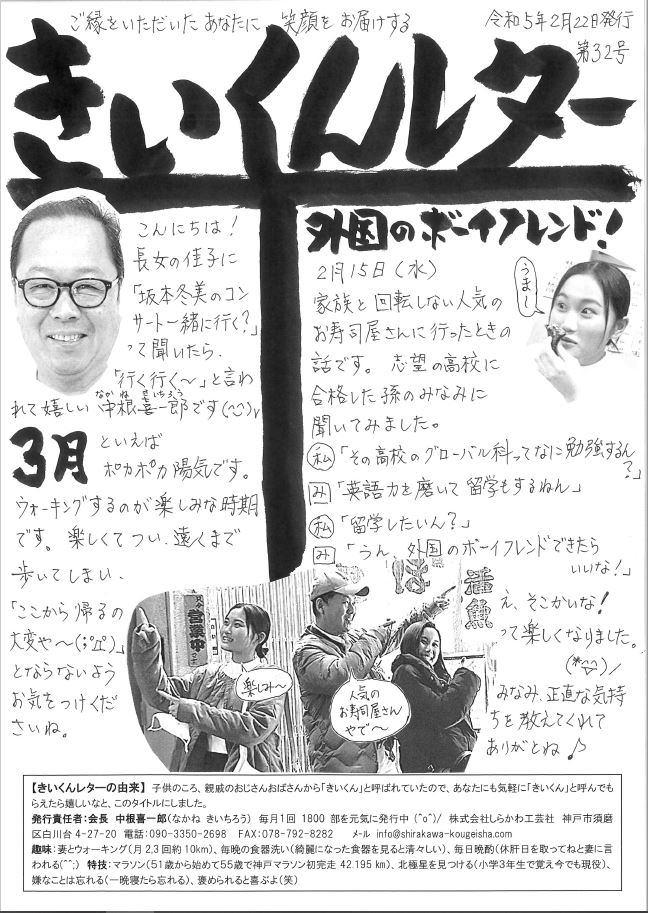 ご縁をいただいたあなたに、笑顔をお届けする
令和5年2月22日発行
第32号
きいくんレター
こんにちは!
長女の佳子に
「坂本冬美のコン
サート一緒に行く?」
って聞いたら、
「行く行く〜」と言わ
れて嬉しい 中根喜一郎です(^◡^)v
なかね きいちろう
3月 といえば
ポカポカ陽気です。
ウォーキングするのが楽しみな時期
です。楽しくてつい、遠くまで
歩いてしまい、
「ここから帰るの
大変や〜(;ﾟДﾟ)」
とならないよう
お気をつけくだ
さいね。
外国のボーイフレンド!
2月15日(水)
家族と回転しない人気の
お寿司屋さんに行ったときの
話です。志望の高校に
合格した孫のみなみに
聞いてみました。
うまー
私「その高校のグローバル科ってなに勉強するん
?」
み「英語力を磨いて留学もするねん」
私「留学したいん?」
み「うん、外国のボーイフレンドできたら
いいな!」
え、そこかいな!
って楽しくなりました。
(*^^)/
みなみ、正直な気持
ちを教えてくれて
ありがとね♪
営業中
活魚
楽しみ〜
人気の
お寿司屋さん
やで〜
【きいくんレターの由来】 子供のころ、親戚のおじさんおばさんから「きいくん」と呼ばれていたので、あなたにも気軽に「きいくん」と呼んでも
らえたら嬉しいなと、このタイトルにしました。
発行責任者:会長 中根喜一郎(なかね きいちろう) 毎月1回 1800 部を元気に発行中 (^o^)/ 株式会社しらかわ工芸社 神戸市須磨
区白川台 4-27-20 電話:090-3350-2698 FAX:078-792-8282 メール info@shirakawa-kougeisha.com
趣味:妻とウォーキング(月 2,3 回約 10km)、毎晩の食器洗い(綺麗になった食器を見ると清々しい)、毎日晩酌(休肝日を取ってねと妻に言
われる(^^;) 特技:マラソン(51歳から始めて55歳で神戸マラソン初完走 42.195 km)、北極星を見つける(小学3年生で覚え今でも現役)、
嫌なことは忘れる(一晩寝たら忘れる)、褒められると喜ぶよ(笑)